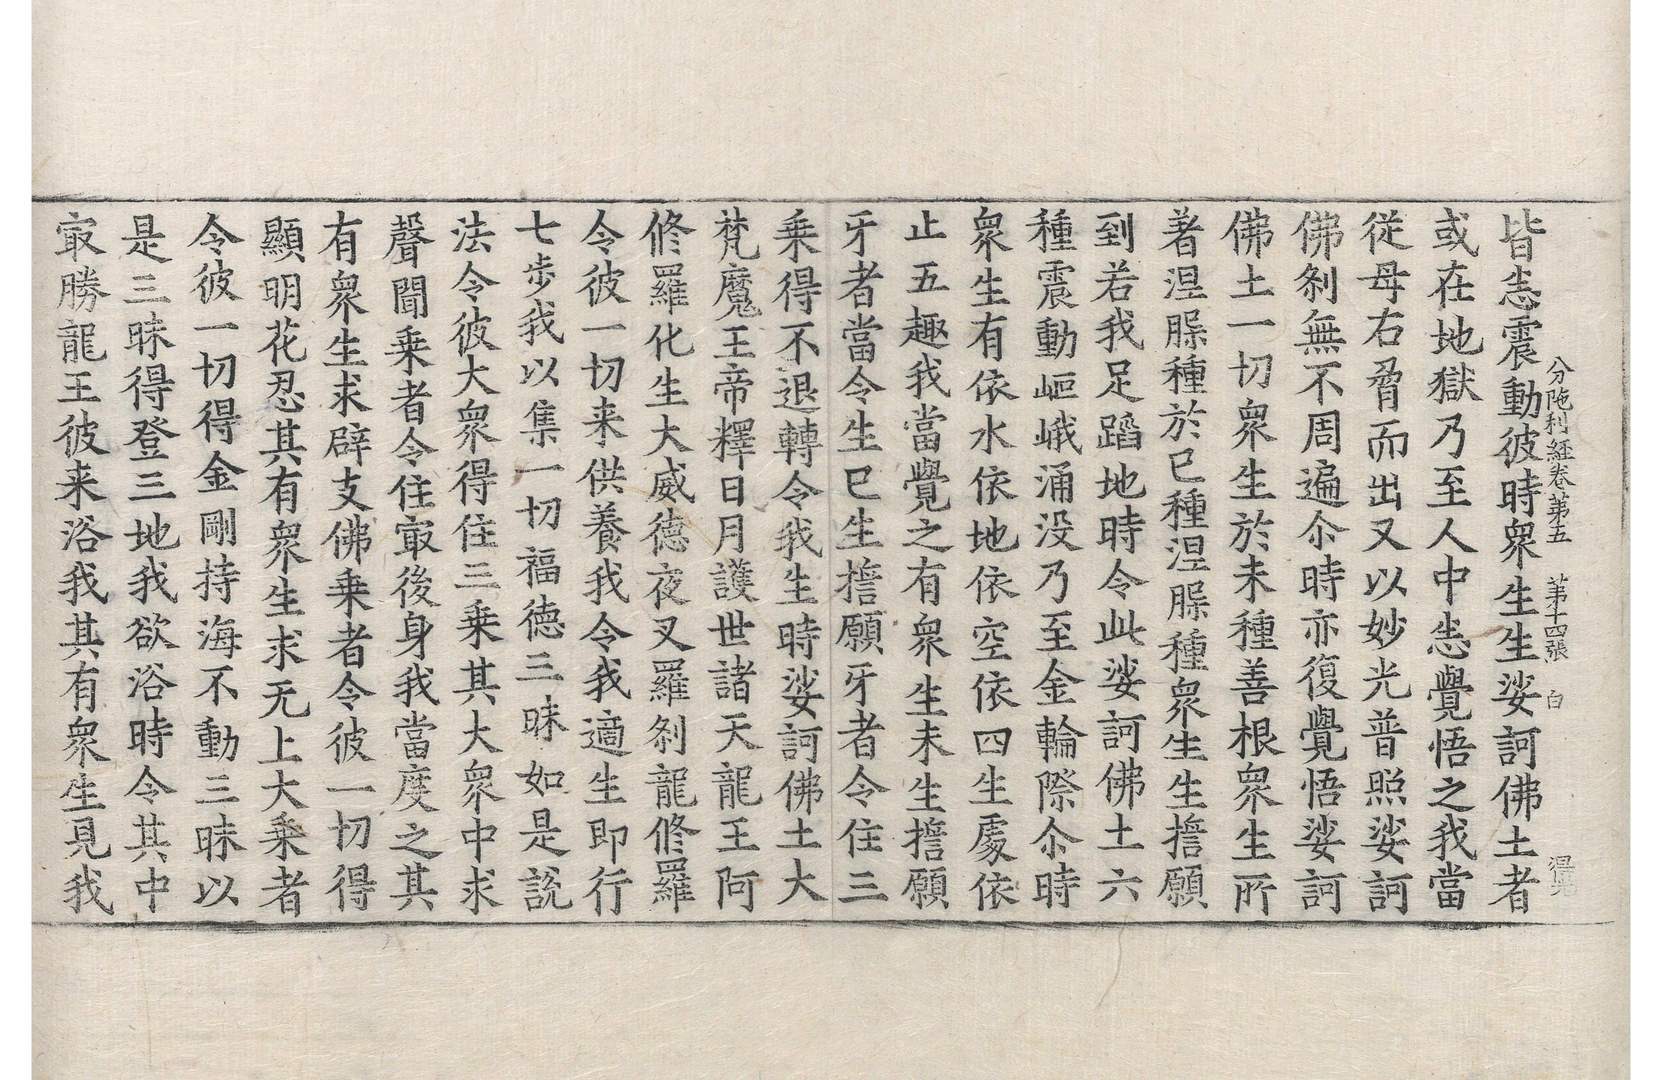 分陁利經卷第五 苐十四張 白
皆悉震動彼時衆生生娑訶佛土者
或在地獄乃至人中悉覺悟之我當
從母右脅而出又以妙光普照娑訶
佛剎無不周遍尒時亦復覺悟娑訶
佛土一切衆生於未種善根衆生所
著涅槃種於已種涅槃種衆生生擔願
到若我足蹈地時令此娑訶佛土六
種震動岖峨涌没乃至金輪際尒時
衆生有依水依地依空依四生處依
止五趣我當覺之有衆生未生擔願
牙者當令生已生擔願牙者令住三
乗得不退轉令我生時娑訶佛土大
梵魔王帝釋日月護世諸天龍王阿
修羅化生大威德夜叉羅剎龍修羅
令彼一切来供養我令我適生即行
七步我以集一切福德三昧如是說
法令彼大衆得住三乗其大衆中求
聲聞乗者令住㝡後身我當度之其
有衆生求辟支佛乗者令彼一切得
顯明花忍其有衆生求无上大乗者
令彼一切得金剛持海不動三昧以
是三昧得登三地我欲浴時令其中
㝡勝龍王彼来浴我其有衆生見我